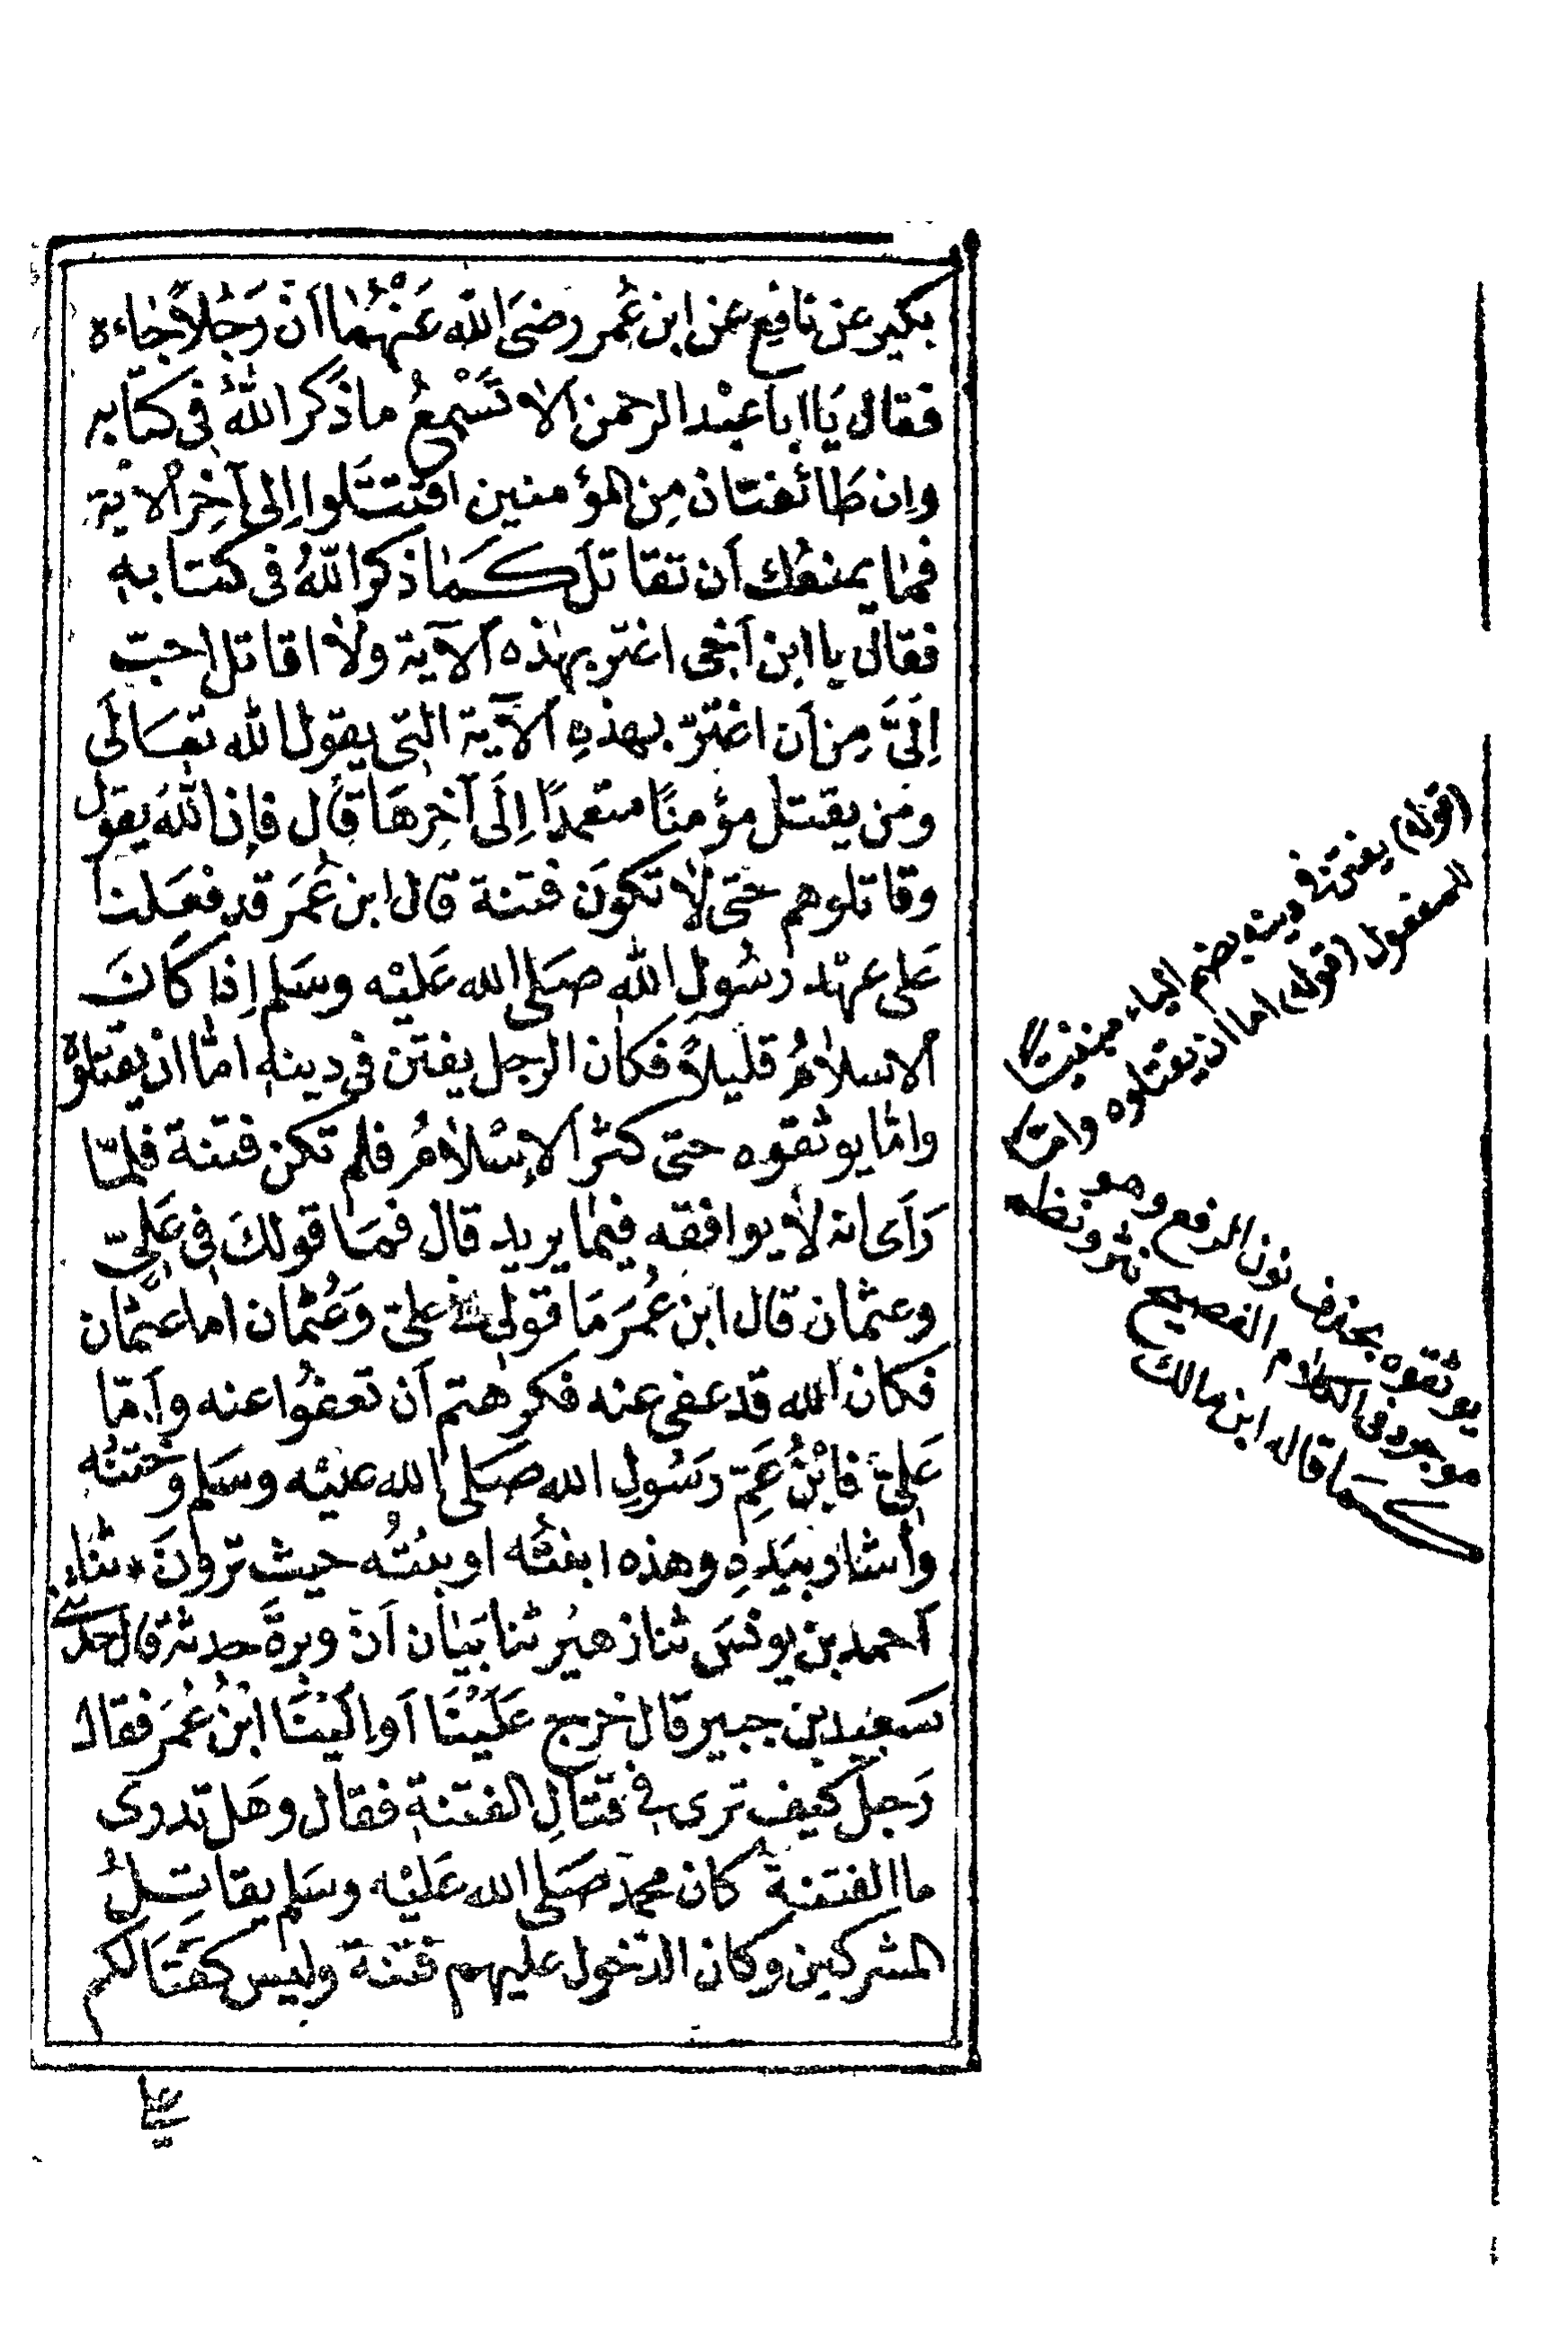 بكير عن نافع عن ابن عُمر رضىَ الله عَنْهُمٰا اَنّ رَجُلاً جٰاءه
فقال يَا ابا عبْد الرحمن اَلا تَسْمعُ ما ذكر اللهُ فى كتابه
واِن طَائفتان مِن المؤمنين اقتتَلوا اِلى آخِر اْلاية
فمٰا يمنعُك اَن تقاتلَ كَمٰا ذكر اللّهُ فى كتابه
فقال يا ابن اَخى اغترّ بهٰذه اَلآية ولاٰ اقاتل احبّ
اِلَىَّ مِن اَن اغترّ بهذهِ اَلآية التى يقول الله تعَالَى
ومَن يقتل مؤمنًا متعمدًا اِلَى آخِرهَا قال فاِن اللهَ يقول
وقاتلوهم حتى لاٰ تكوَن فتنة قال ابن عُمَر قد فعَلنا
عَلى عهْد رسُولِ الله صَلى الله عَليْه وسَلم اِذا كَانَ
اَلاسلاٰمُ قليلاً فكان الرجل يفتن فى دينه امّٰا ان يقتلوهُ
وامّٰا يوثقوه حتى كثر اَلاِسْلاٰمُ فلم تكن فتنة فلمّا
رَاَى انه لاٰ يوافقه فيمٰا يريد قال فمَا قولكَ فى عَلىّ
وعثمان قال ابن عُمَر مَا قولى فى علىّ وَعُثمٰان اما عثمان
فكان الله قد عفى عنه فكرهتم اَن تعفُوا عنه واَمّا
عَلىّ فابْنُ عَمّ رسَُولِ الله صَلى الله عليْه وسَلم وختنُه
واَشار بيَدهِ وهذه ابنتُه او بنتُه حيث تروْنَ ۰ ثناء
اَحمد بن يونسَ ثنا زهيُر ثنا بَيٰان اَنّ وبرةَ حدثه قال حدثنى
سَعيد بن جبير قال خرج عَلَيْنَا اَو اِلَيْنَا ابْنُ عُمَر فقال
رَجلٌ كيف ترى فى قتاَلِ الفتنة فقال وهَل تدرى
ما الفتنةُ كان محمدٌ صَلى الله عَليْه وسَلم يقاتِلُ
المشركين وكان الدّخول عليهم فتنة وليس كقتَالكم
على
(قوله) يفتن فى دينه بضم الياء مبنيًّا
للمفعول (قوله) اما ان يقتلوه وامّا
يوثقوه بحذف نون الرفع وهو
موجود فى الكلام الفصيح نثر ونظم
كما قاله ابن مالك